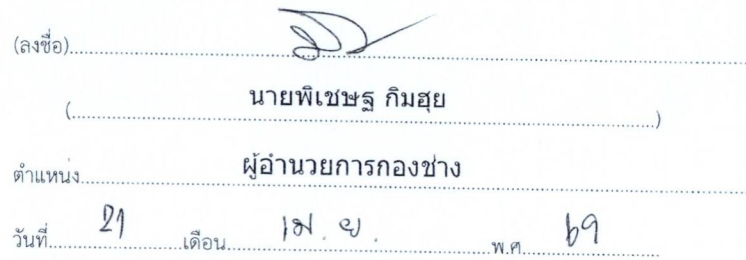 (ลงชื่อ)
(นายพิเชษฐ กิมฮุย)
ตำแหน่ง ผู้อำนวยการกองช่าง
วันที่ 21 เดือน เม.ย. พ.ศ. 69